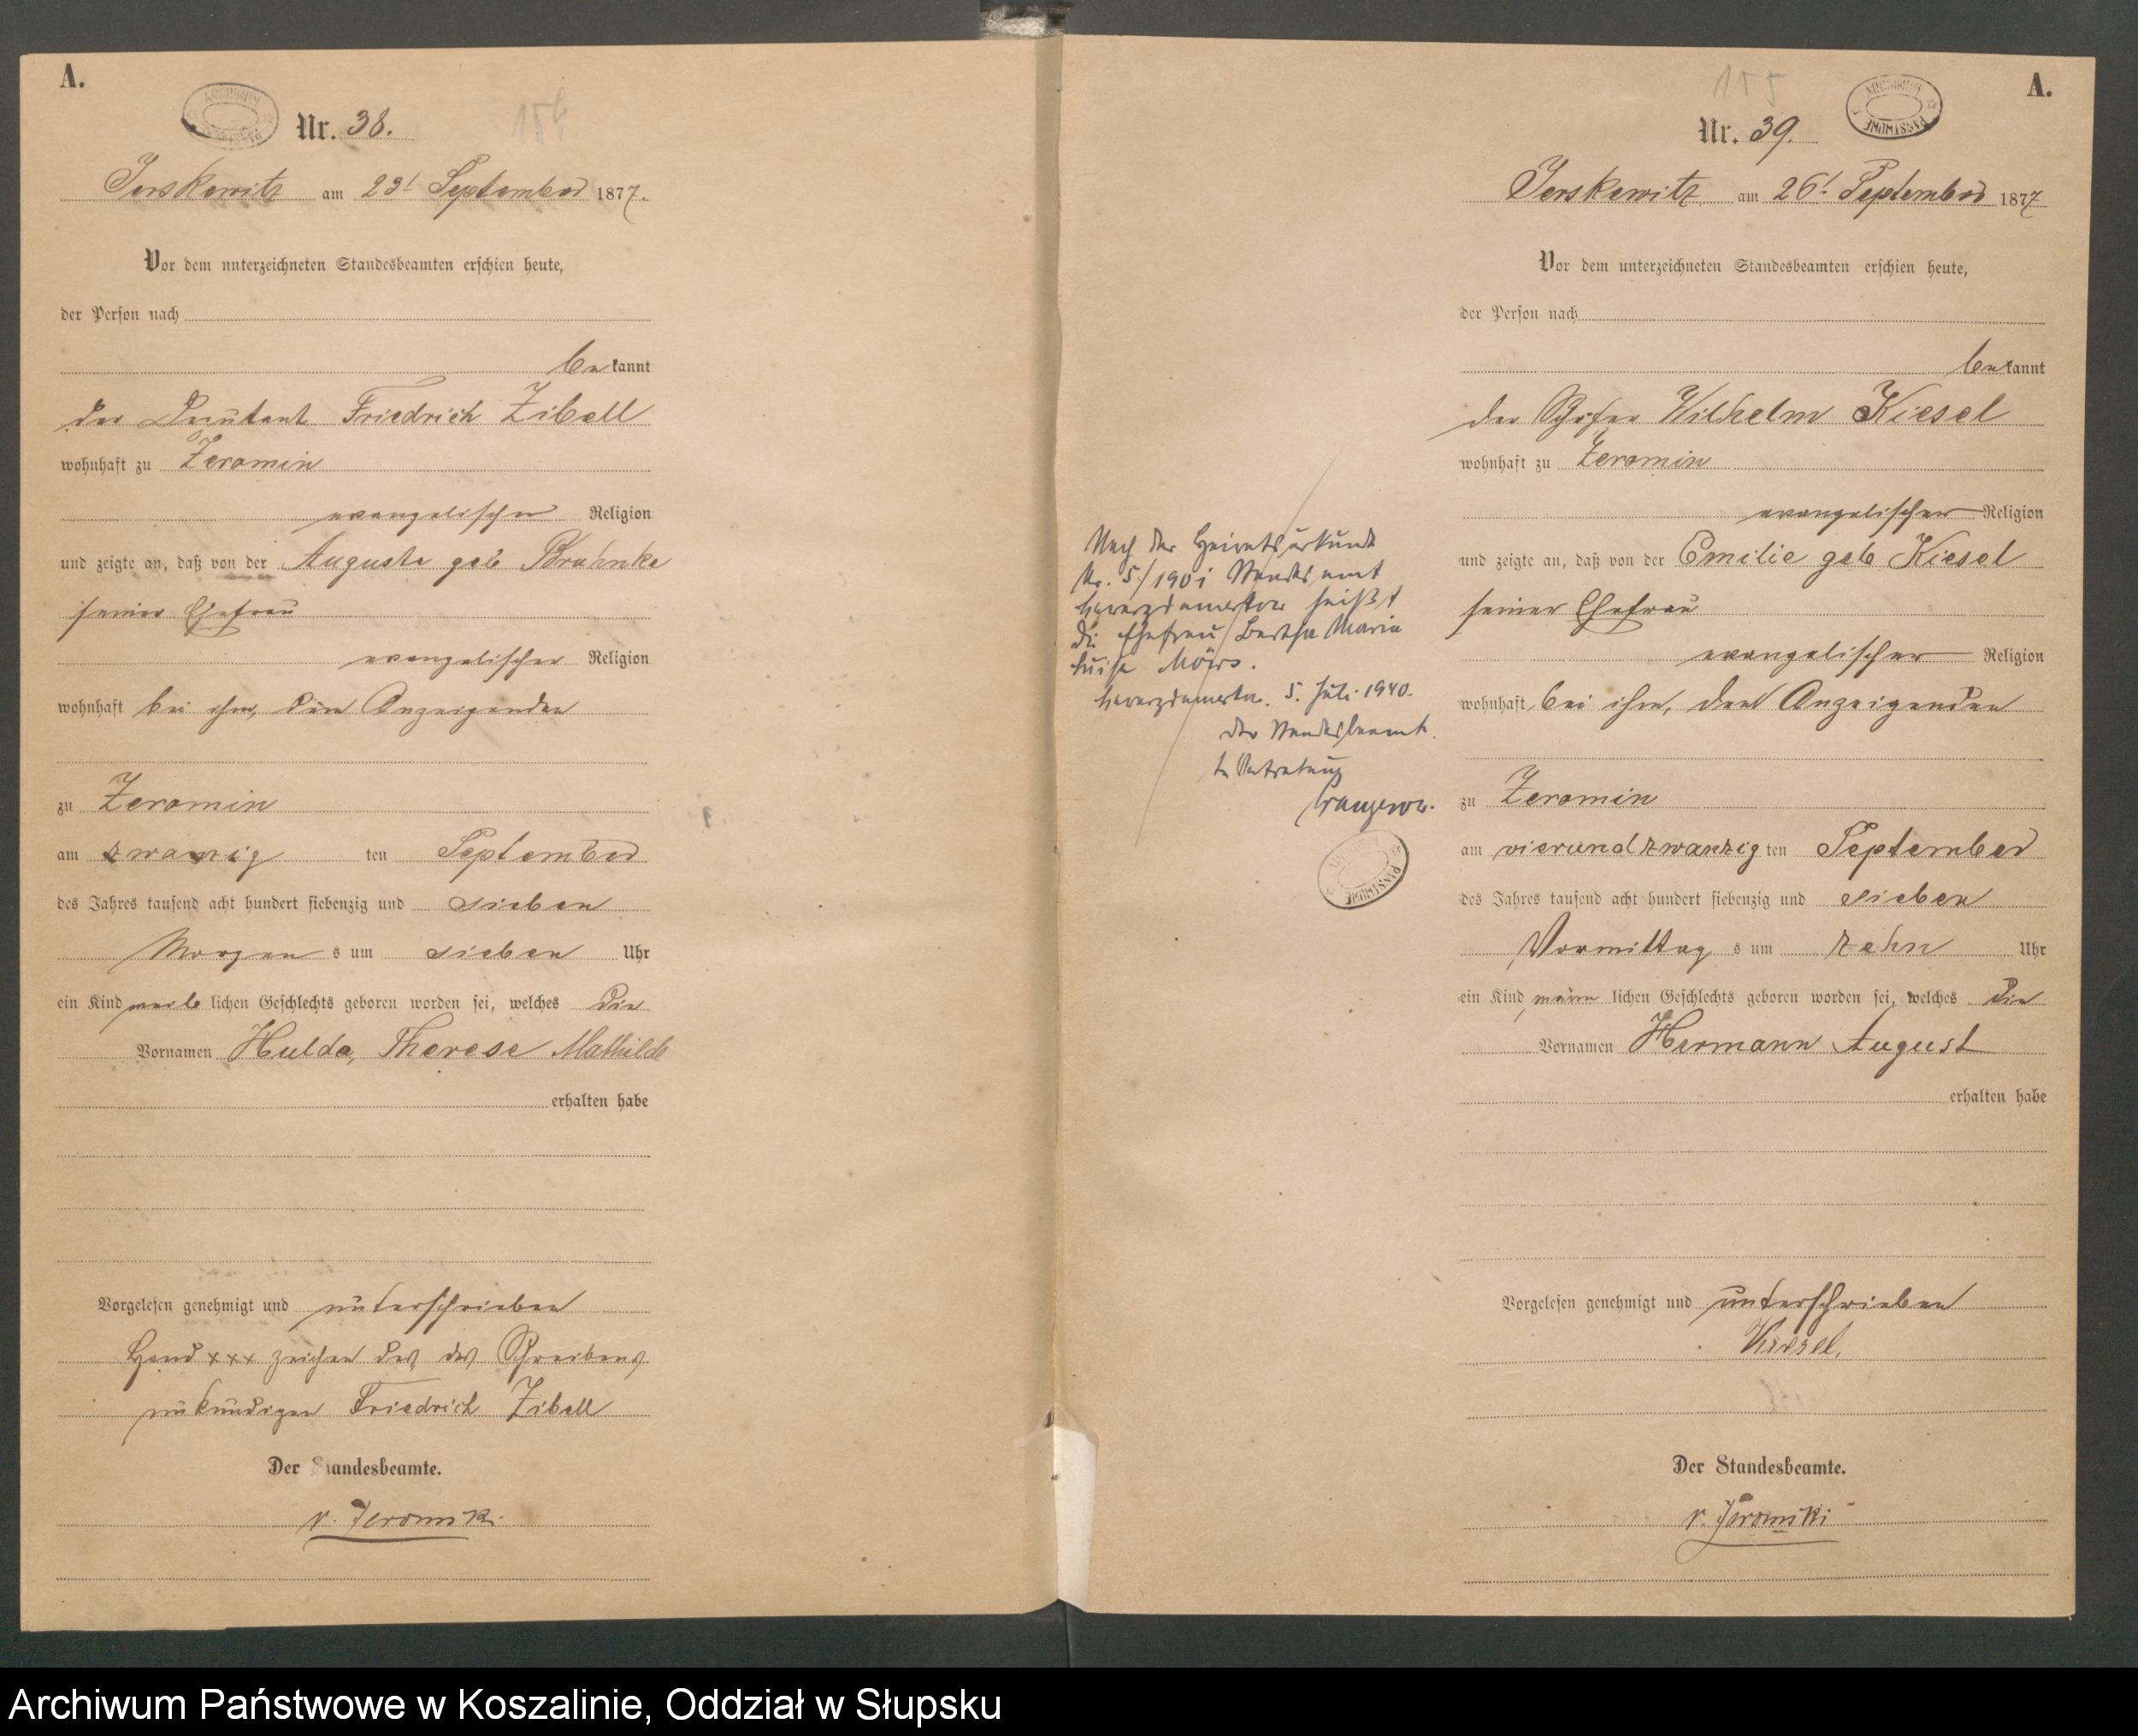 A.
Nr. 38.
154
Jerskewitz am 23t September 1877.
Vor dem unterzeichneten Standesbeamten erschien heute,
der Person nach
bekannt
der Deputant Friedrich Zibell
wohnhaft zu Zeromin
evangelischer Religion
und zeigte an, daß von der Auguste geb
seiner Ehefrau
evangelischer Religion
wohnhaft bei ihm, dem Anzeigenden
zu Zeromin
am zwanzig ten September
des Jahres tausend acht hundert siebenzig und sieben
Morgens um sieben Uhr
ein Kind weiblichen Geschlechts geboren worden sei, welches die
Vornamen Hulda, Therese Mathilde
erhalten habe
Vorgelesen genehmigt und unterschrieben
Hand xxx zeichen des des Schreibens
unkundigen Friedrich Zibell
Der Standesbeamte.
v.
Nach der Heiratsurkunde
Nr. 5/1901 Standesamt
heißt
die Ehefrau Bertha Maria
Luise
5. Juli 1940.
Der Standesbeamte.
In Vertretung
A.
155
ARCHIWUM PAŃSTWOWE
Nr. 39.
Jerskewitz am 26t September 1877
Vor dem unterzeichneten Standesbeamten erschien heute,
der Person nach
bekannt
der Schäfer Wilhelm Kiesel
wohnhaft zu Zeromin
evangelischer Religion
und zeigte an, daß von der Emilie geb Kiesel
seiner Ehefrau
evangelischer Religion
wohnhaft bei ihm, dem Anzeigenden
zu Zeromin
am vierundzwanzig ten September
des Jahres tausend acht hundert siebenzig und sieben
Vormittags um zehn Uhr
ein Kind männlichen Geschlechts geboren worden sei, welches die
Vornamen Hermann August
erhalten habe
Vorgelesen genehmigt und unterschrieben
Kiesel.
Der Standesbeamte.
v.
Archiwum Państwowe w Koszalinie, Oddział w Słupsku